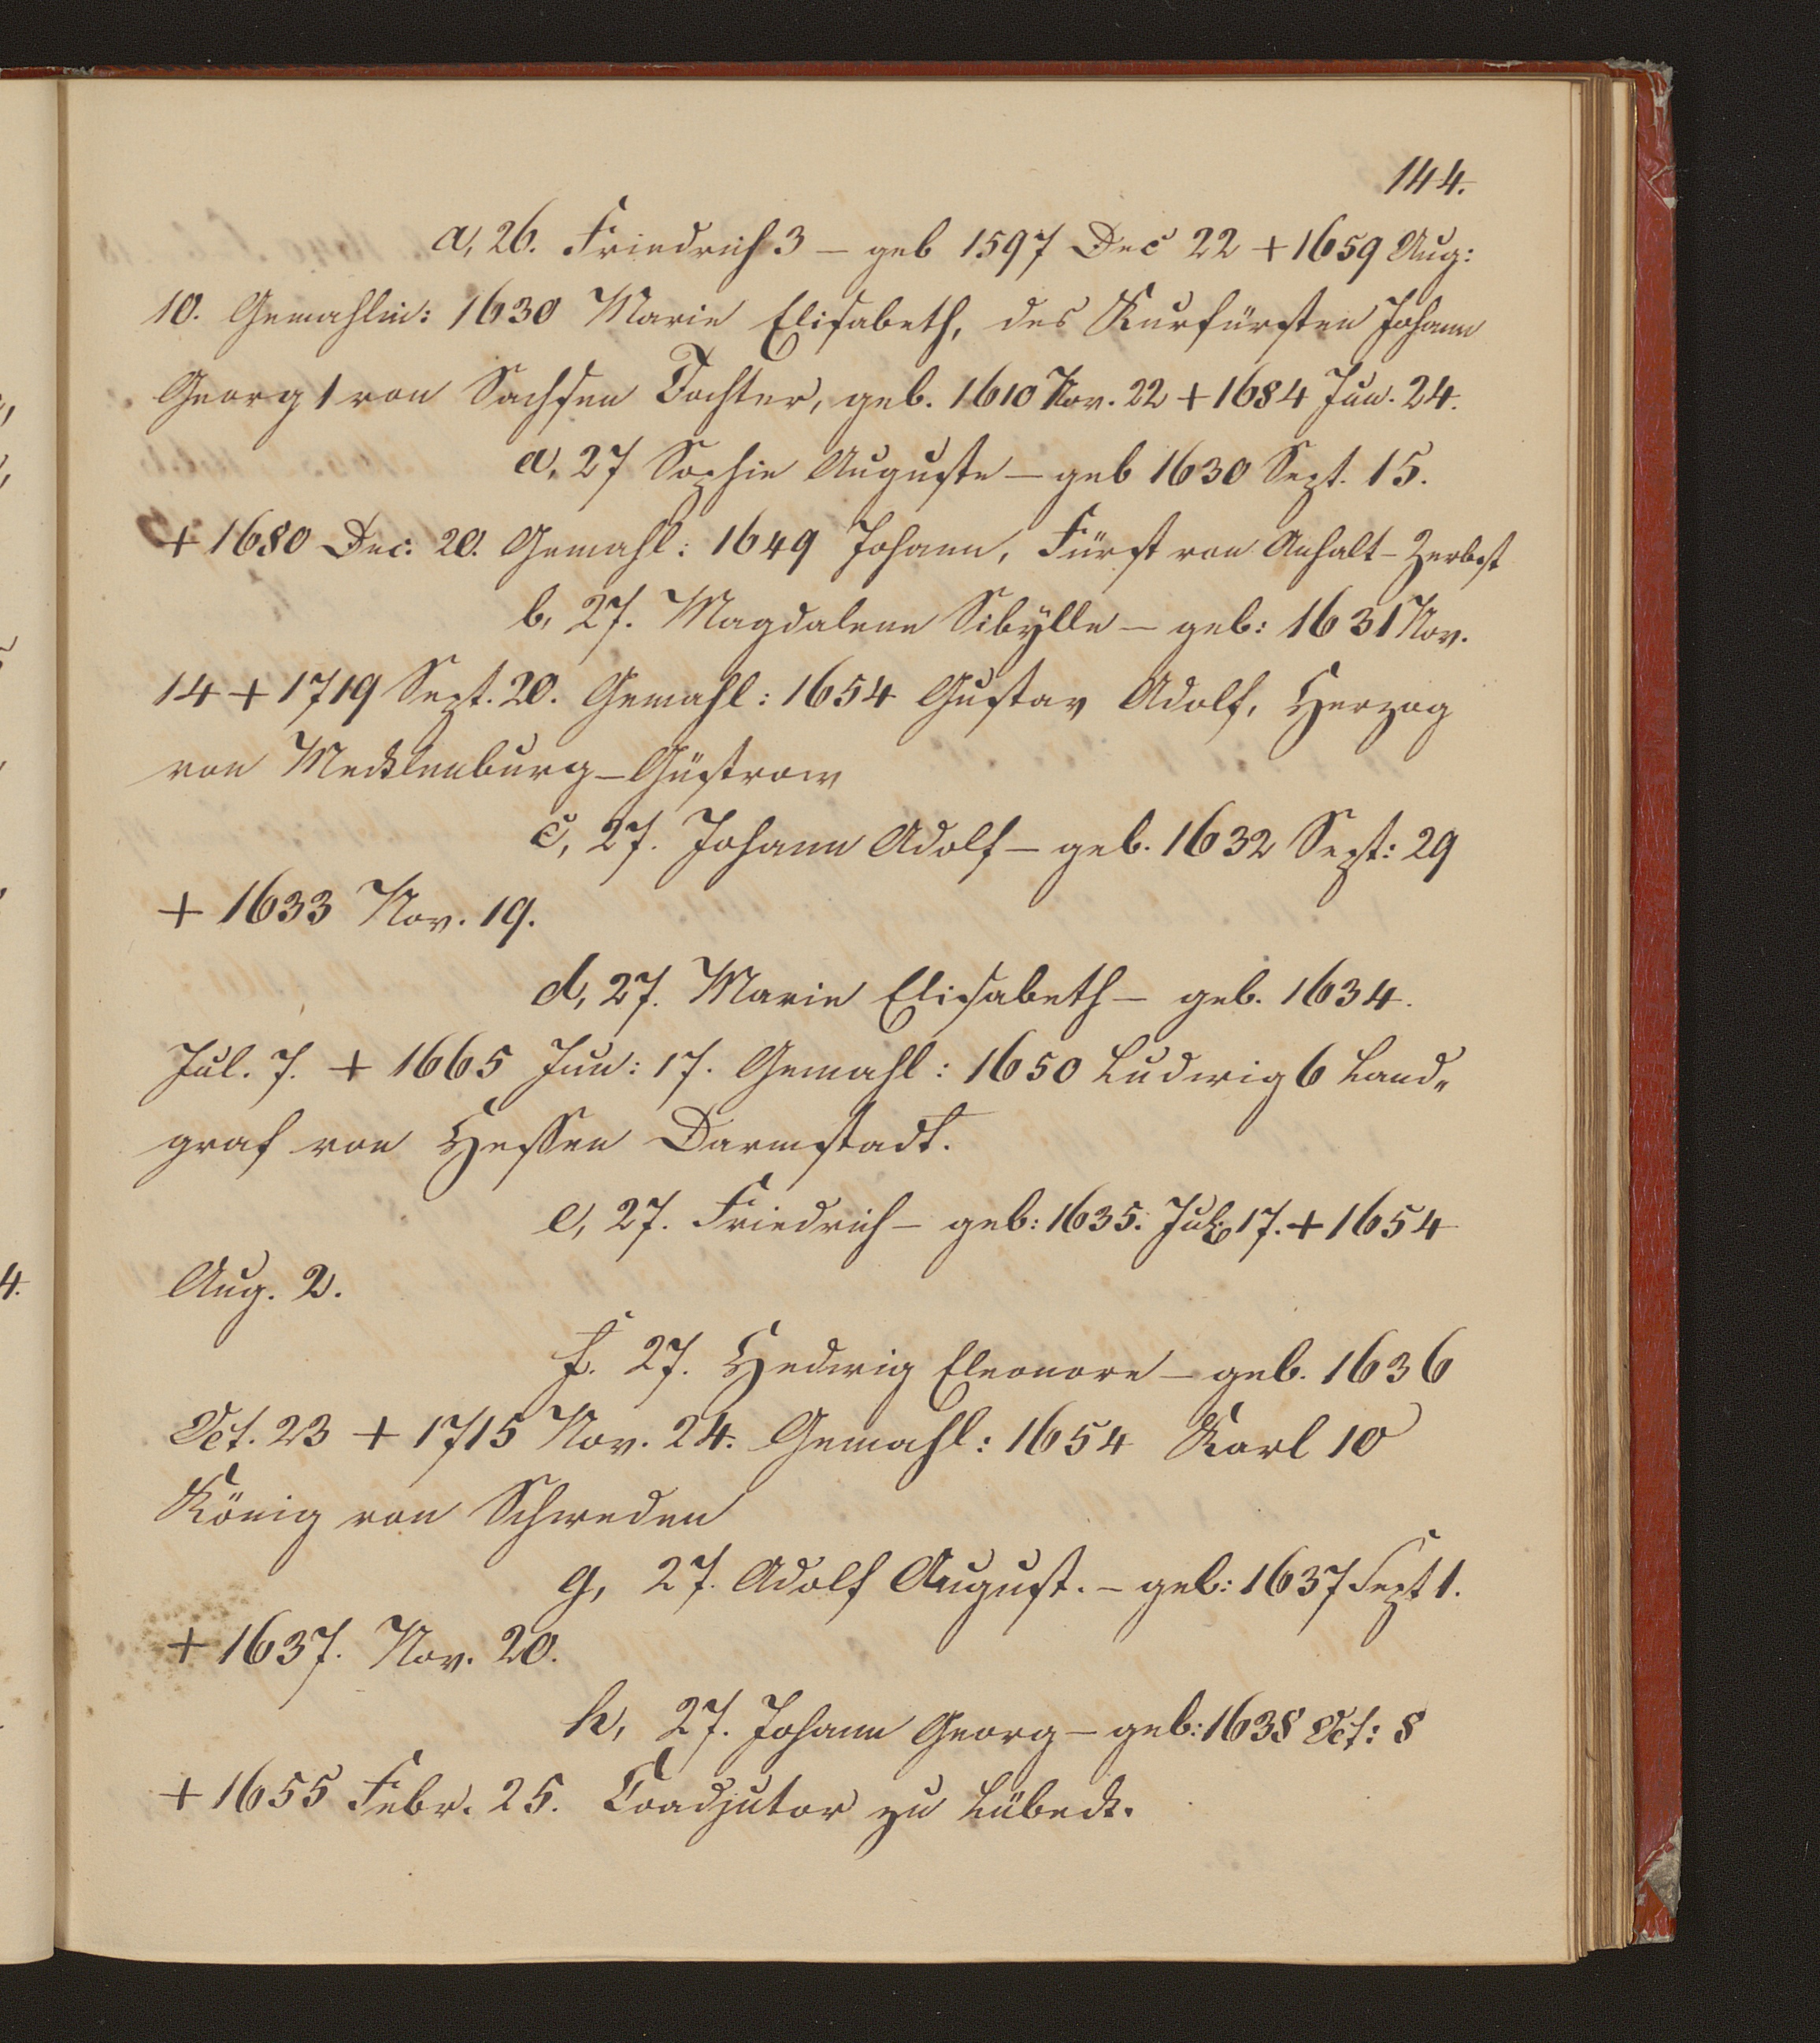 144.
a, 26. Friedrich 3 – geb 1597 Dec 22 + 1659 Aug:
10. Gemahlin: 1630 Marie Elisabeth, des Kurfürsten Johann
Georg 1 von Sachsen Tochter, geb. 1610 Nov. 22 + 1684 Jun. 24.
a, 27 Sophie Auguste – geb 1630 Sept. 15.
+ 1680 Dec. 20. Gemahl: 1649 Johann, Fürst von Anhalt-Zerbst
b, 27. Magdalene Sibÿlle – geb: 1631 Nov.
14 + 1719 Sept. 20. Gemahl: 1654 Gustav Adolf, Herzog
von Mecklenburg-Güstrow
c, 27. Johann Adolf – geb. 1632 Sept: 29
+ 1633 Nov. 19.
d, 27. Marie Elisabeth – geb. 1634.
Jul. 7. + 1665 Jun: 17. Gemahl: 1650 Ludwig 6 Land„
graf von Hessen Darmstadt.
e, 27. Friedrich – geb: 1635. Jul. 17. + 1654
Aug. 2.
f. 27. Hedwig Eleonore – geb. 1636
Oct. 23 + 1715 Nov. 24. Gemahl: 1654 Karl 10
König von Schweden
g, 27. Adolf August. – geb: 1637 Sept 1.
+ 1637. Nov. 20.
h, 27. Johann Georg – geb: 1638 Oct: 8
+ 1655 Febr. 25. Coadjutor zu Lübeck.
4.